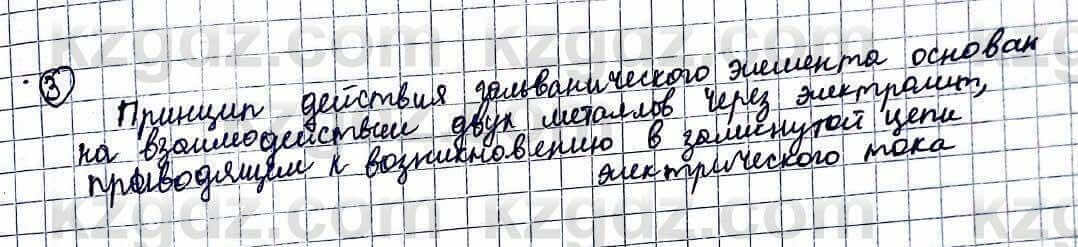 kzgdz.com kzgdz.com
3
Принцип действия гальванического элемента основан
на взаимодействии двух металлов через электролит,
приводящем к возникновению в замкнутой цепи
электрического тока
kzgdz.com kzgdz.com